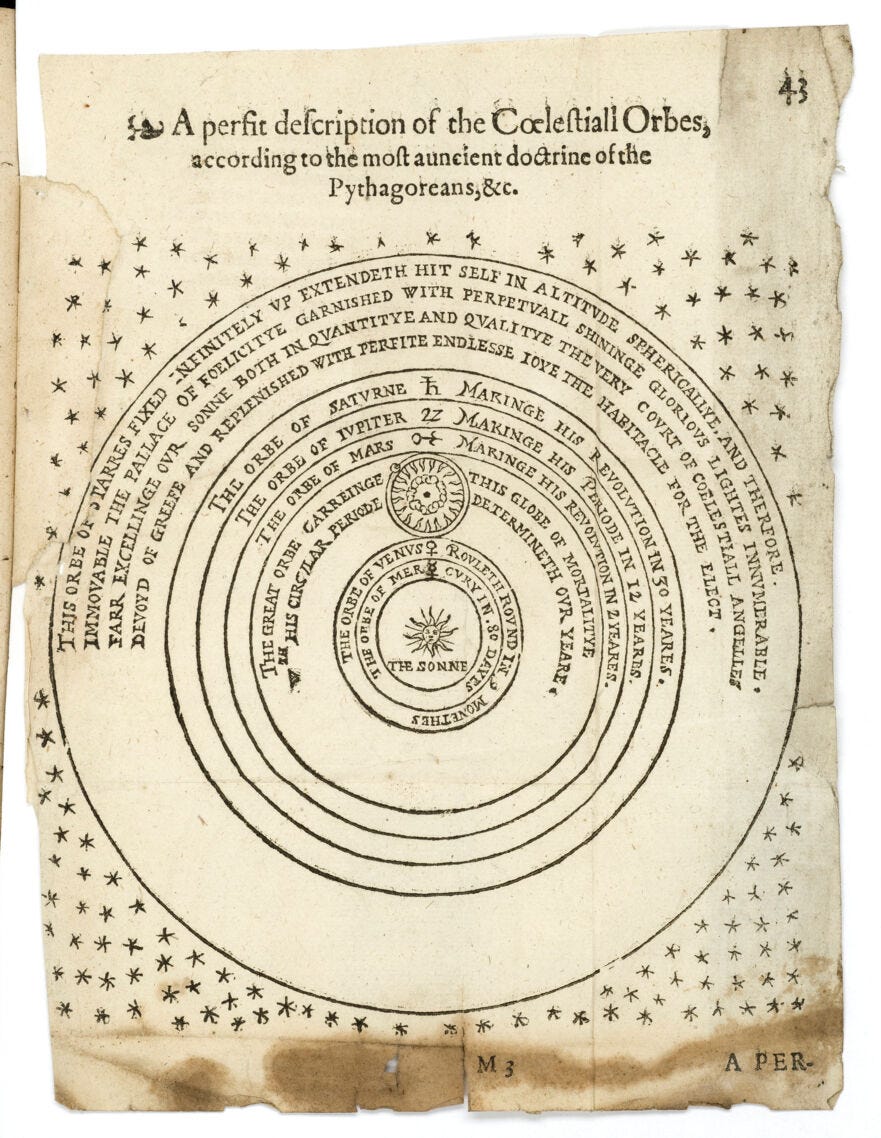 43
A perfit deſcription of the Cœleſtiall Orbes,
according to the moſt auncient doctrine of the
Pythagoreans, &c.
THIS ORBE OF STARRES FIXED INFINITELY VP EXTENDETH HIT SELF IN ALTITVDE SPHERICALLYE, AND THERFORE
IMMOVABLE THE PALLACE OF FOELICITYE GARNISHED WITH PERPETVALL SHININGE GLORIOVS LIGHTES INNVMERABLE.
FARR EXCELLINGE OVR SONNE BOTH IN QVANTITYE AND QVALITYE THE VERY COVRT OF COELESTIALL ANGELLES
DEVOYD OF GREEFE AND REPLENISHED WITH PERFITE ENDLESSE IOYE THE HABITACLE FOR THE ELECT.
THE ORBE OF SATVRNE ♄ MAKINGE HIS REVOLVTION IN 30 YEARES.
THE ORBE OF IVPITER ♃ MAKINGE HIS PERIODE IN 12 YEARES.
THE ORBE OF MARS ♂ MAKINGE HIS REVOLVTION IN 2 YEARES.
THE GREAT ORBE CARREINGE THIS GLOBE OF MORTALITYE
WTH HIS CIRCVLAR PERIODE DETERMINETH OVR YEARE.
THE ORBE OF VENVS ♀ ROVLETH ROVND IN 9 MONETHES
THE ORBE OF MER ☿ CVRY IN 80 DAYES
THE SONNE
M 3
A PER-